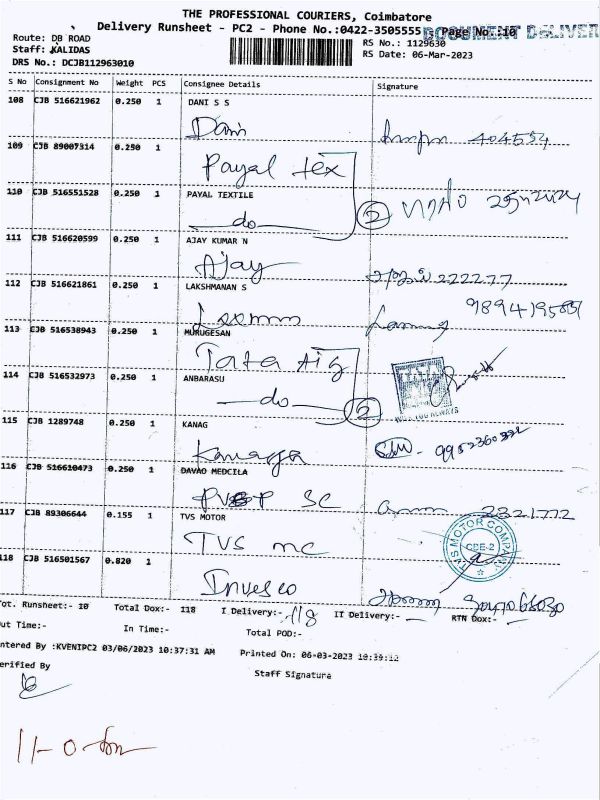 THE PROFESSIONAL COURIERS, Coimbatore
Delivery Runsheet - PC2 - Phone No.:0422-3505555 Page No.:10
DOCUMENT DELIVER
Route: DB ROAD
RS No.: 1129630
Staff: KALIDAS
RS Date: 06-Mar-2023
DRS No.: DCJB112963010
S No Consignment No Weight PCS Consignee Details Signature
108 CJB 516621962 0.250 1 DANI S S
Dani 404554
109 CJB 89007314 0.250 1
Payal tex
110 CJB 516551528 0.250 1 PAYAL TEXTILE
do 2
111 CJB 516620599 0.250 1 AJAY KUMAR N
Ajay 222277
112 CJB 516621861 0.250 1 LAKSHMANAN S
113 CJB 516538943 0.250 1 MURUGESAN
Tata Aig
114 CJB 516532973 0.250 1 ANBARASU
do 2
TATA
WITH YOU ALWAYS
115 CJB 1289748 0.250 1 KANAG
116 CJB 516610473 0.250 1 DAVAO MEDCILA
117 CJB 89306644 0.155 1 TVS MOTOR
TVS mc
TVS MOTOR COMPANY
CBE-2
118 CJB 516501567 0.820 1
Invesco
Tot. Runsheet:- 10 Total Dox:- 118 I Delivery:- 118 II Delivery:- RTN Dox:-
Out Time:- In Time:- Total POD:-
Entered By :KVENIPC2 03/06/2023 10:37:31 AM Printed On: 06-03-2023 10:39:12
Verified By
Staff Signature